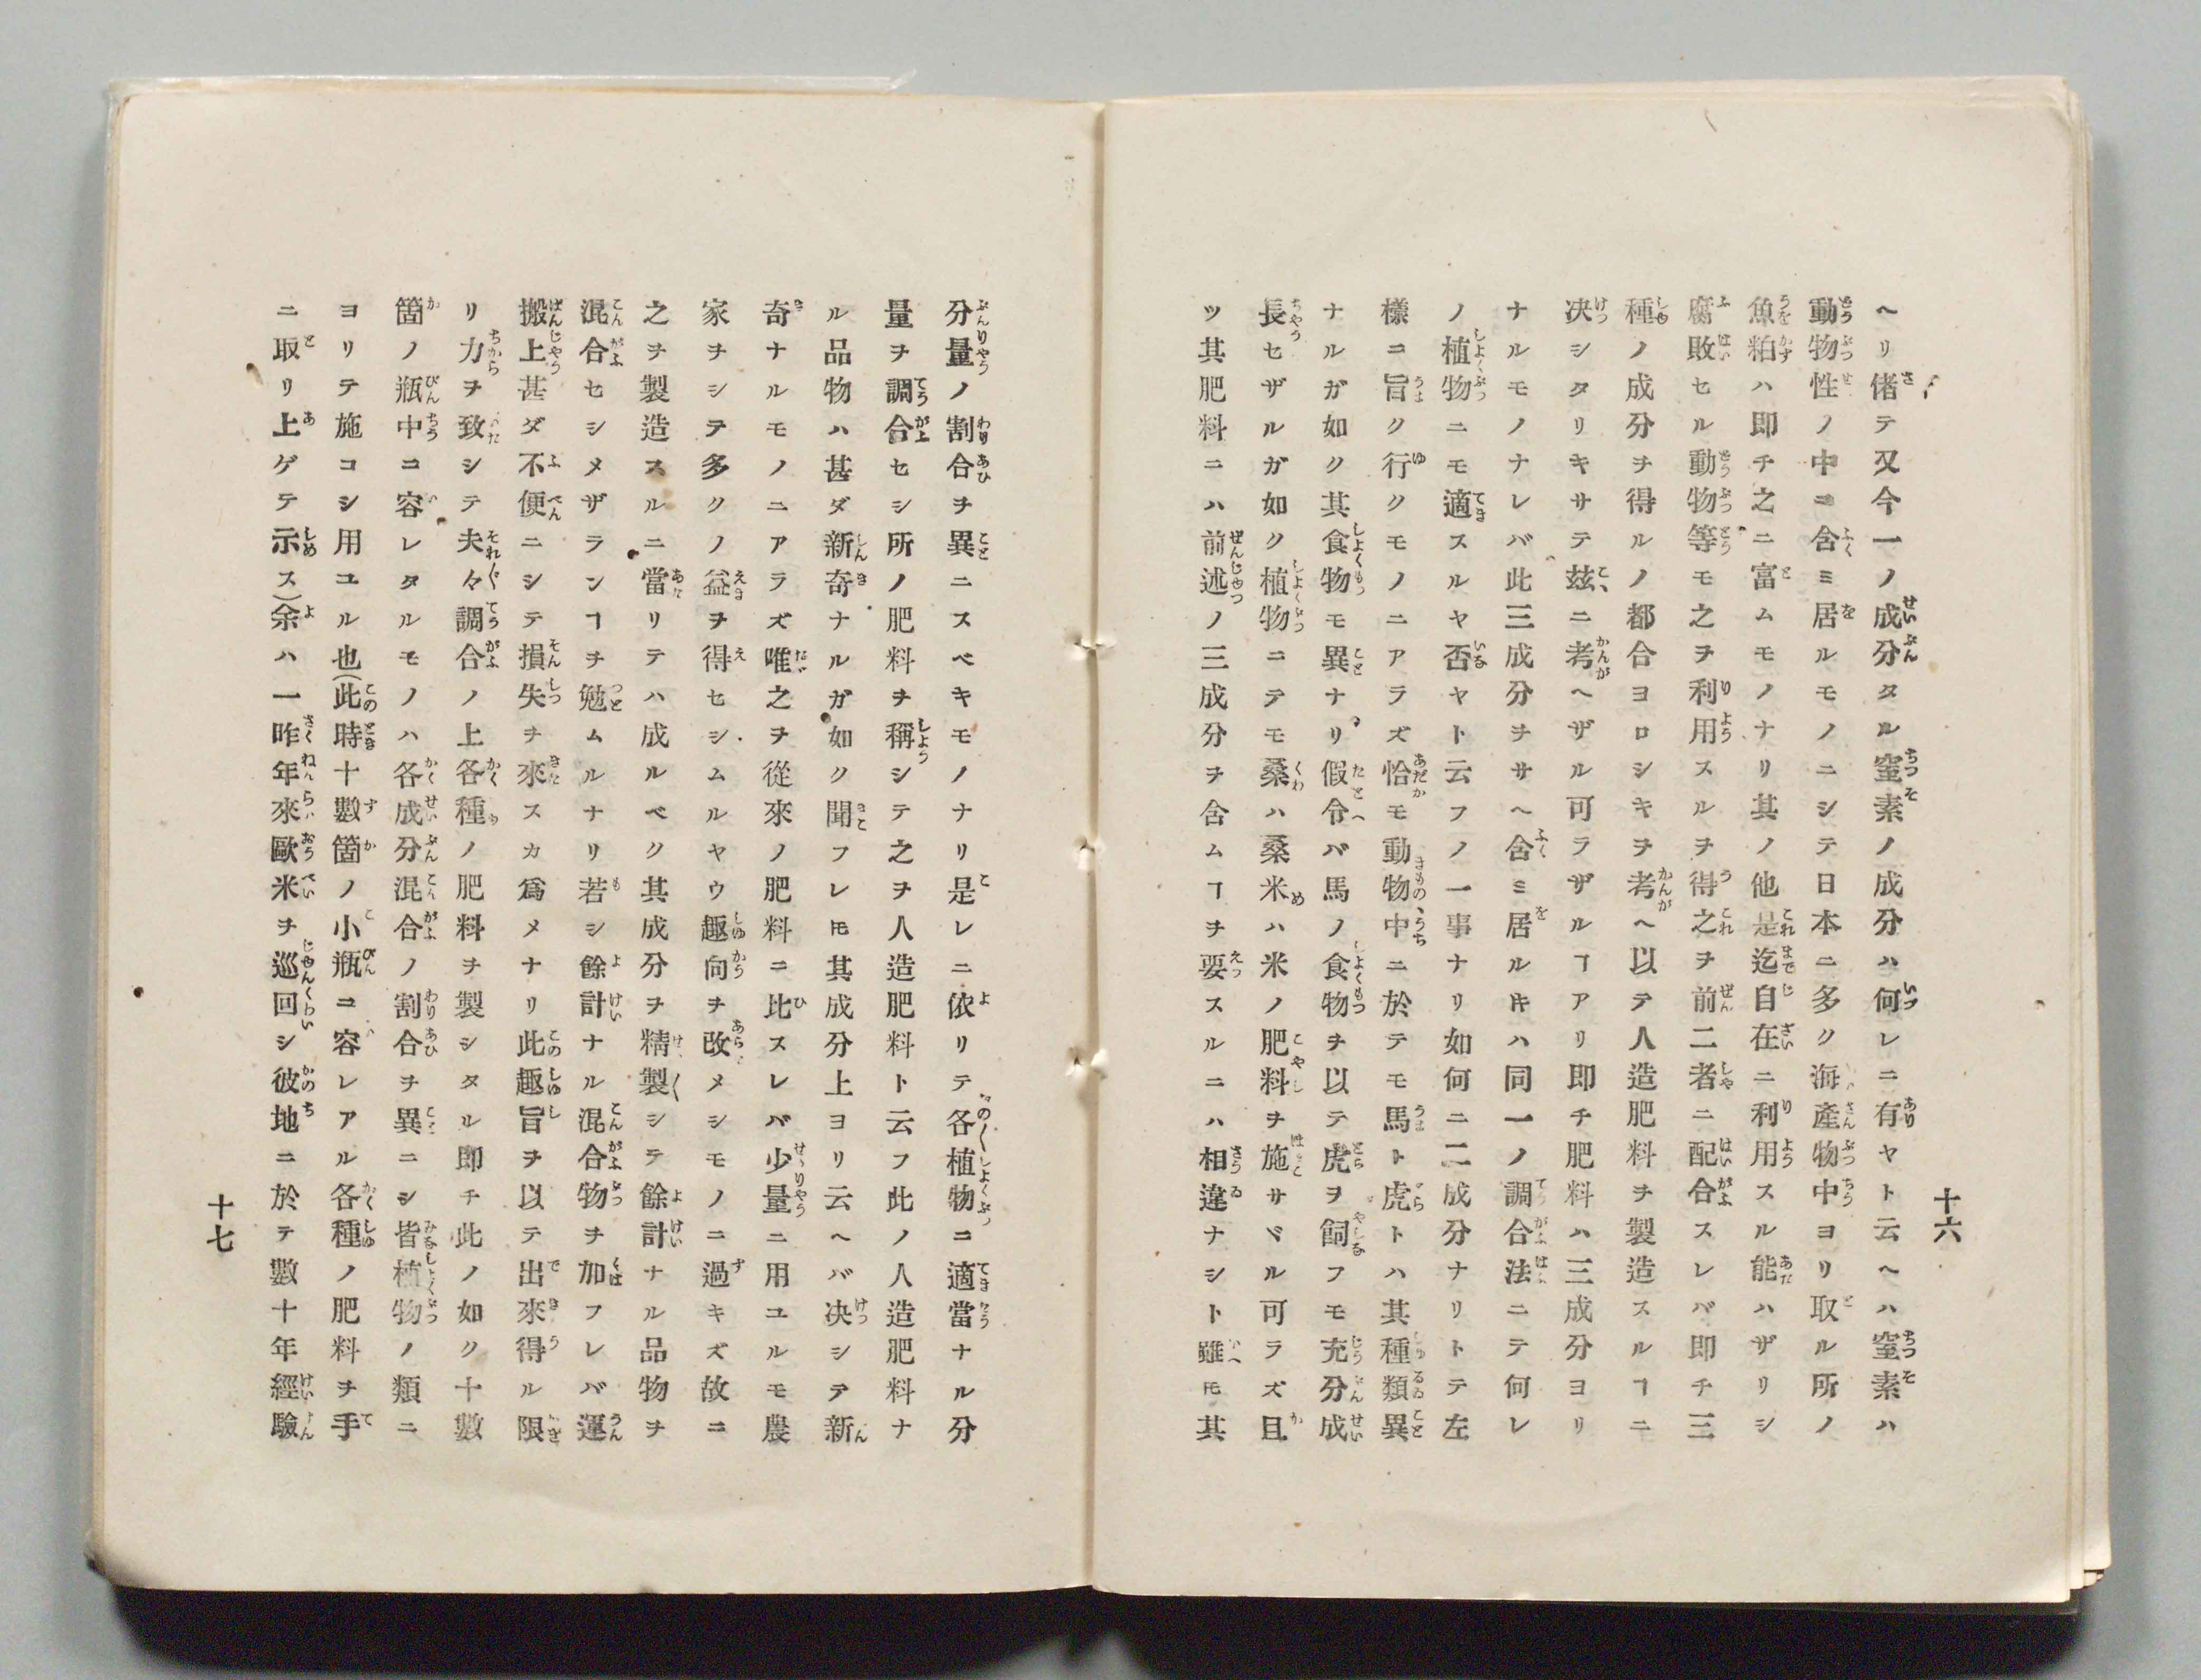 十六
ヘリ偖テ又今一ノ成分タル窒素ノ成分ハ何レニ有ヤト云ヘハ窒素ハ
動物性ノ中ニ含ミ居ルモノニシテ日本ニ多ク海產物中ヨリ取ル所ノ
魚粕ハ即チ之ニ富ムモノナリ其ノ他是迄自在ニ利用スル能ハザリシ
腐敗セル動物等モ之ヲ利用スルヲ得之ヲ前二者ニ配合スレバ即チ三
種ノ成分ヲ得ルノ都合ヨロシキヲ考ヘ以テ人造肥料ヲ製造スルヿニ
决シタリキサテ玆ニ考ヘザル可ラザルヿアリ即チ肥料ハ三成分ヨリ
ナルモノナレバ此三成分ヲサヘ含ミ居ルキハ同一ノ調合法ニテ何レ
ノ植物ニモ適スルヤ否ヤト云フノ一事ナリ如何ニ二成分ナリトテ左
樣ニ旨ク行クモノニアラズ恰モ動物中ニ於テモ馬ト虎トハ其種類異
ナルガ如ク其食物モ異ナリ假令バ馬ノ食物ヲ以テ虎ヲ飼フモ充分成
長セザルガ如ク植物ニテモ桑ハ桑米ハ米ノ肥料ヲ施サヾル可ラズ且
ツ其肥料ニハ前述ノ三成分ヲ含ムヿヲ要スルニハ相違ナシト雖ㇳモ其
分量ノ割合ヲ異ニスベキモノナリ是レニ依リテ各植物ニ適當ナル分
量ヲ調合セシ所ノ肥料ヲ稱シテ之ヲ人造肥料ト云フ此ノ人造肥料ナ
ル品物ハ甚ダ新奇ナルガ如ク聞フレㇳモ其成分上ヨリ云ヘバ决シテ新
奇ナルモノニアラズ唯之ヲ從來ノ肥料ニ比スレバ少量ニ用ユルモ農
家ヲシテ多クノ益ヲ得セシムルヤウ趣向ヲ改メシモノニ過キズ故ニ
之ヲ製造スルニ當リテハ成ルベク其成分ヲ精製シテ餘計ナル品物ヲ
混合セシメザランヿヲ勉ムルナリ若シ餘計ナル混合物ヲ加フレバ運
搬上甚ダ不便ニシテ損失ヲ來スカ爲メナリ此趣旨ヲ以テ出來得ル限
リ力ヲ致シテ夫々調合ノ上各種ノ肥料ヲ製シタル即チ此ノ如ク十數
箇ノ瓶中ニ容レタルモノハ各成分混合ノ割合ヲ異ニシ皆植物ノ類ニ
ヨリテ施コシ用ユル也(此時十數箇ノ小瓶ニ容レアル各種ノ肥料ヲ手
ニ取リ上ゲテ示ス)余ハ一昨年來歐米ヲ巡回シ彼地ニ於テ數十年經驗
十七